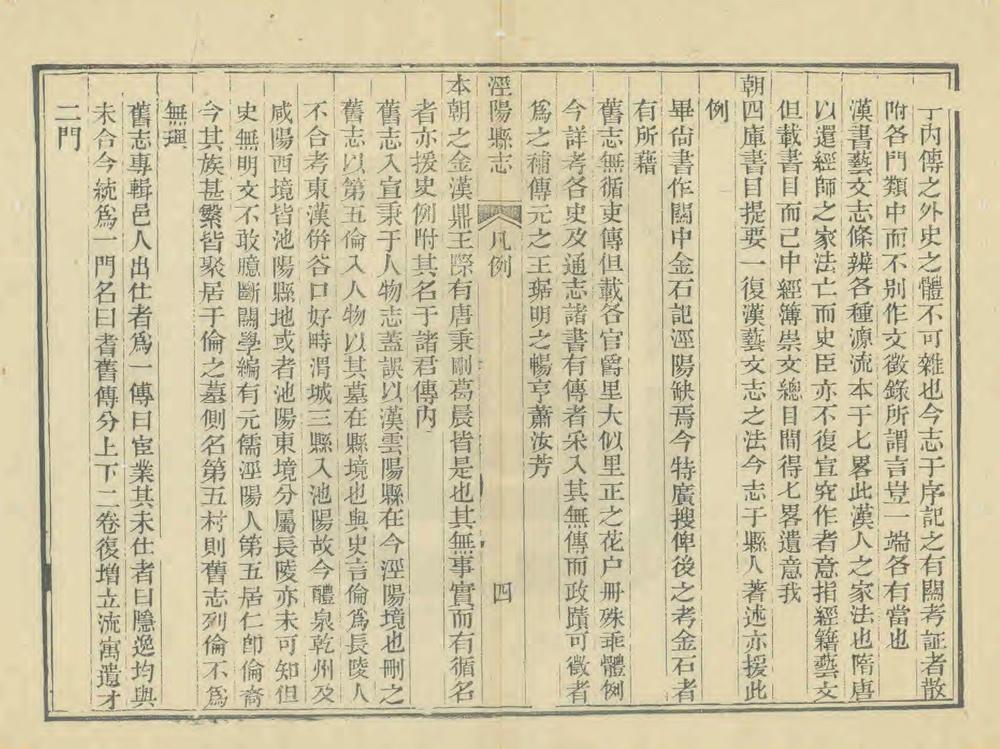 丁丙傳之外史之體不可雜也今志于序記之有關考証者散
附各門類中而不别作文徵錄所謂言豈一端各有當也
漢書藝文志條辨各種源流本于七畧此漢人之家法也隋唐
以還經師之家法亡而史臣亦不復宣究作者意指經籍藝文
但載書目而已中經簿崇文總目間得七畧遺意我
朝四庫書目提要一復漢藝文志之法今志于縣人著述亦援此
例
畢尚書作關中金石記涇陽缺焉今特廣搜俾後之考金石者
有所藉
舊志無循吏傳但載各官爵里大似里正之花户冊殊乖體例
今詳考各史及通志諸書有傳者采入其無傳而政蹟可徵者
爲之補傳元之王琚明之暢亨蕭汝芳
涇陽縣志 凡例 四
本朝之金漢鼎王際有唐秉剛葛晨皆是也其無事實而有循名
者亦援史例附其名于諸君傳內
舊志入宣秉于人物志蓋誤以漢雲陽縣在今涇陽境也刪之
舊志以第五倫入人物以其墓在縣境也與史言倫爲長陵人
不合考東漢併谷口好畤渭城三縣入池陽故今醴泉乾州及
咸陽西境皆池陽縣地或者池陽東境分屬長陵亦未可知但
史無明文不敢臆斷關學編有元儒涇陽人第五居仁卽倫裔
今其族甚繁皆聚居于倫之墓側名第五村則舊志列倫不爲
無理
舊志專輯邑人出仕者爲一傳曰宦業其未仕者曰隱逸均與
未合今統爲一門名曰耆舊傳分上下二卷復增立流寓遺才
二門